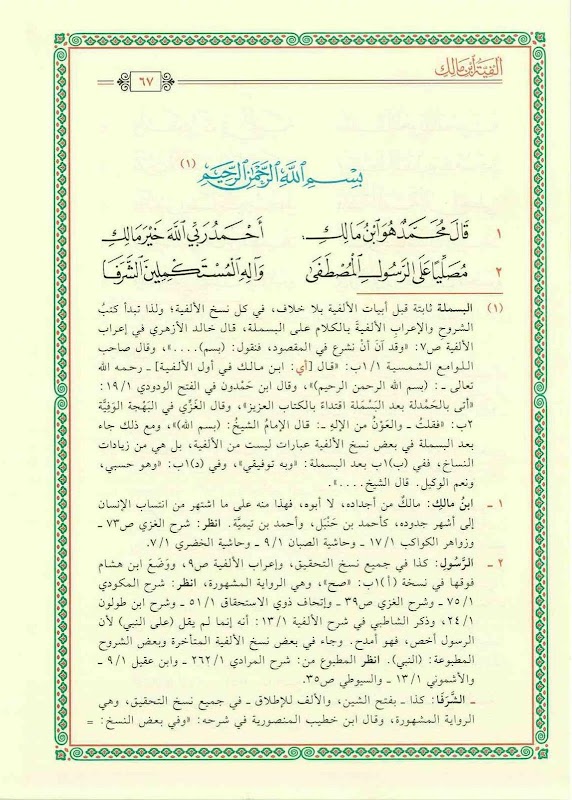 ألفية ابن مالك
٦٧
بِسْمِ اللَّهِ الرَّحْمَٰنِ الرَّحِيمِ (١)
١ قَالَ مُحَمَّدٌ هُوَ ابْنُ مَالِكِ: أَحْمَدُ رَبِّي اللَّهَ خَيْرَ مَالِكِ
٢ مُصَلِّيًا عَلَى الرَّسُولِ الْمُصْطَفَى وَآلِهِ الْمُسْتَكْمِلِينَ الشَّرَفَا
(١) البسملة ثابتة قبل أبيات الألفية بلا خلاف، في كل نسخ الألفية؛ ولذا تبدأ كتبُ
الشروحِ والإعرابِ الألفيةَ بالكلام على البسملة، قال خالد الأزهري في إعراب
الألفية ص٧: «وقد آنَ أنْ نشرع في المقصود، فنقول: (بسم)....»، وقال صاحب
اللوامع الشمسية ١/١ب: «قال [أي: ابن مالك في أول الألفية] ـ رحمه الله
تعالى ـ: (بسم الله الرحمن الرحيم)»، وقال ابن حَمْدون في الفتح الودودي ١٩/١:
«أتى بالحَمْدلة بعد البَسْمَلة اقتداءً بالكتاب العزيز»، وقال الغُزِّي في البَهْجة الوَفِيَّة
٢ب: «فقلتُ ـ والعَوْنُ من الإلهِ ـ: قال الإمامُ الشيخُ: (بسم الله)»، ومع ذلك جاء
بعد البسملة في بعض نسخ الألفية عبارات ليست من الألفية، بل هي من زيادات
النساخ، ففي (ب)١ب بعد البسملة: «وبه توفيقي»، وفي (د)١ب: «وهو حسبي،
ونعم الوكيل. قال الشيخ....».
١ ـ ابنُ مالكِ: مالكٌ من أجداده، لا أبوه، فهذا منه على ما اشتهر من انتساب الإنسان
إلى أشهر جدوده، كأحمد بن حَنْبَل، وأحمد بن تيميَّة. انظر: شرح الغزي ص٧٣ ـ
وزواهر الكواكب ١٧/١ ـ وحاشية الصبان ٩/١ ـ وحاشية الخضري ٧/١.
٢ ـ الرَّسُولِ: كذا في جميع نسخ التحقيق، وإعراب الألفية ص٩، ووَضَعَ ابن هشام
فوقها في نسخة (أ)١ب: «صح»، وهي الرواية المشهورة، انظر: شرح المكودي
٧٥/١ ـ وشرح الغزي ص٣٩ ـ وإتحاف ذوي الاستحقاق ٥١/١ ـ وشرح ابن طولون
٢٤/١، وذكر الشاطبي في شرح الألفية ١٣/١: أنه إنما لم يقل (على النبي) لأن
الرسول أخص، فهو أمدح. وجاء في بعض نسخ الألفية المتأخرة وبعض الشروح
المطبوعة: (النبي). انظر المطبوع من: شرح المرادي ٢٦٢/١ ـ وابن عقيل ٩/١ ـ
والأشموني ١٣/١ ـ والسيوطي ص٣٥.
ـ الشَّرَفَا: كذا ـ بفتح الشين، والألف للإطلاق ـ في جميع نسخ التحقيق، وهي
الرواية المشهورة، وقال ابن خطيب المنصورية في شرحه: «وفي بعض النسخ: =